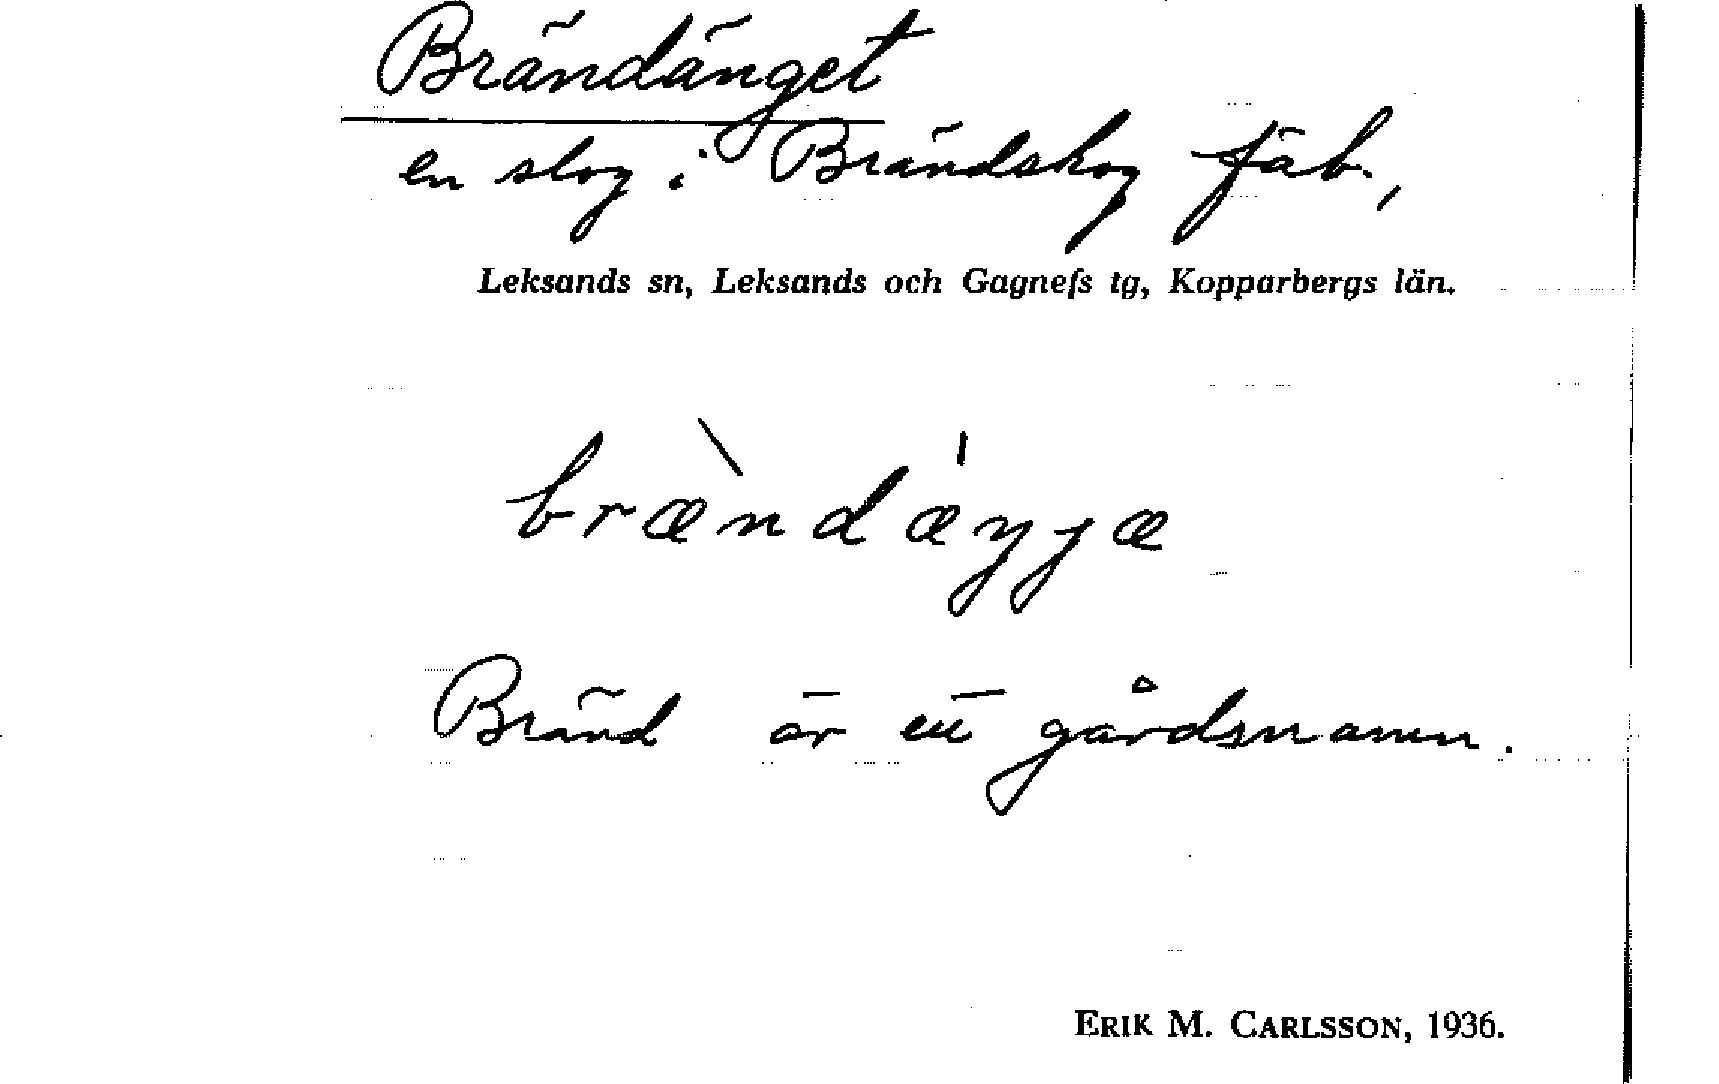 Brändänget
en slog i Brändskog fäb.,
Leksands sn, Leksands och Gagnefs tg, Kopparbergs län.
bræ̀ndæ̍ŋjæ
Bränd är ett gårdsnamn.
ERIK M. CARLSSON, 1936.